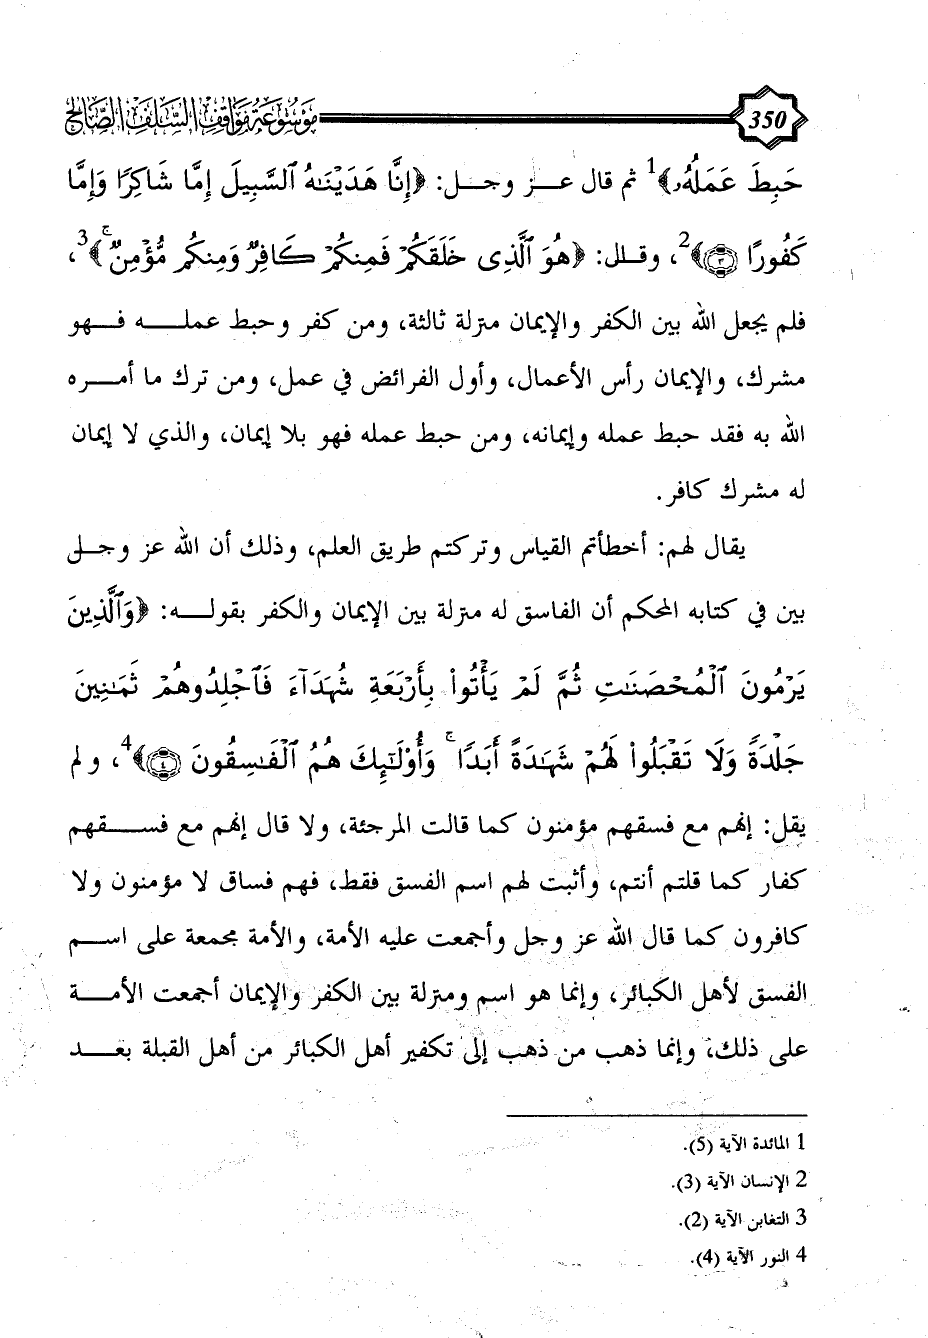 350 موسوعة مواقف السلف الصالح
حَبِطَ عَمَلُهُۥ﴾1 ثم قال عـز وجـل: ﴿إِنَّا هَدَيْنَٰهُ ٱلسَّبِيلَ إِمَّا شَاكِرًا وَإِمَّا
كَفُورًا ﴿٣﴾﴾2، وقال: ﴿هُوَ ٱلَّذِى خَلَقَكُمْ فَمِنكُمْ كَافِرٌ وَمِنكُم مُّؤْمِنٌ ۚ﴾3،
فلم يجعل الله بين الكفر والإيمان منزلة ثالثة، ومن كفر وحبط عملـه فـهو
مشرك، والإيمان رأس الأعمال، وأول الفرائض في عمل، ومن ترك ما أمـره
الله به فقد حبط عمله وإيمانه، ومن حبط عمله فهو بلا إيمان، والذي لا إيمان
له مشرك كافر.
يقال لهم: أخطأتم القياس وتركتم طريق العلم، وذلك أن الله عز وجـل
بين في كتابه المحكم أن الفاسق له منزلة بين الإيمان والكفر بقولـه: ﴿وَٱلَّذِينَ
يَرْمُونَ ٱلْمُحْصَنَٰتِ ثُمَّ لَمْ يَأْتُوا۟ بِأَرْبَعَةِ شُهَدَآءَ فَٱجْلِدُوهُمْ ثَمَٰنِينَ
جَلْدَةً وَلَا تَقْبَلُوا۟ لَهُمْ شَهَٰدَةً أَبَدًا ۚ وَأُو۟لَٰٓئِكَ هُمُ ٱلْفَٰسِقُونَ ﴿٤﴾﴾4، ولم
يقل: إنهم مع فسقهم مؤمنون كما قالت المرجئة، ولا قال إنهم مع فسـقهم
كفار كما قلتم أنتم، وأثبت لهم اسم الفسق فقط، فهم فساق لا مؤمنون ولا
كافرون كما قال الله عز وجل وأجمعت عليه الأمة، والأمة مجمعة على اسـم
الفسق لأهل الكبائر، وإنما هو اسم ومنزلة بين الكفر والإيمان أجمعت الأمـة
على ذلك، وإنما ذهب من ذهب إلى تكفير أهل الكبائر من أهل القبلة بعـد
1 المائدة الآية (5).
2 الإنسان الآية (3).
3 التغابن الآية (2).
4 النور الآية (4).